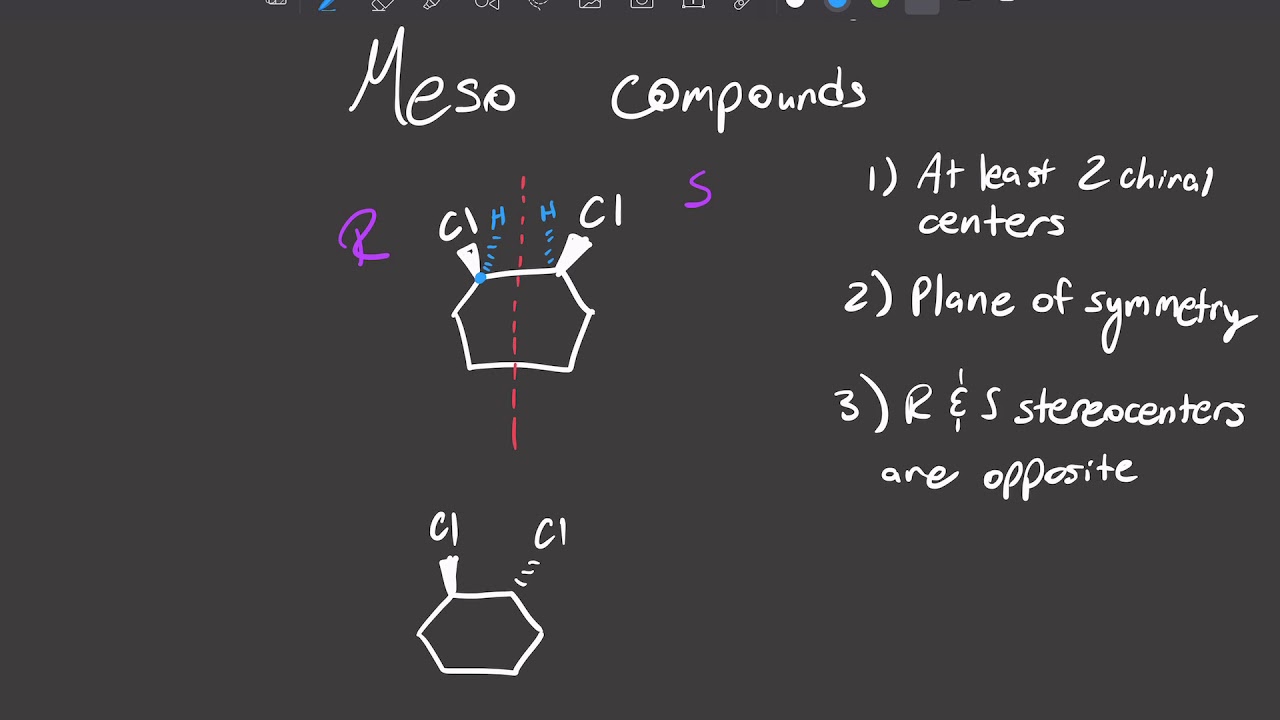 Meso compounds
R
S
Cl H H Cl
1) At least 2 chiral
centers
2) Plane of symmetry
3) R & S stereocenters
are opposite
Cl Cl